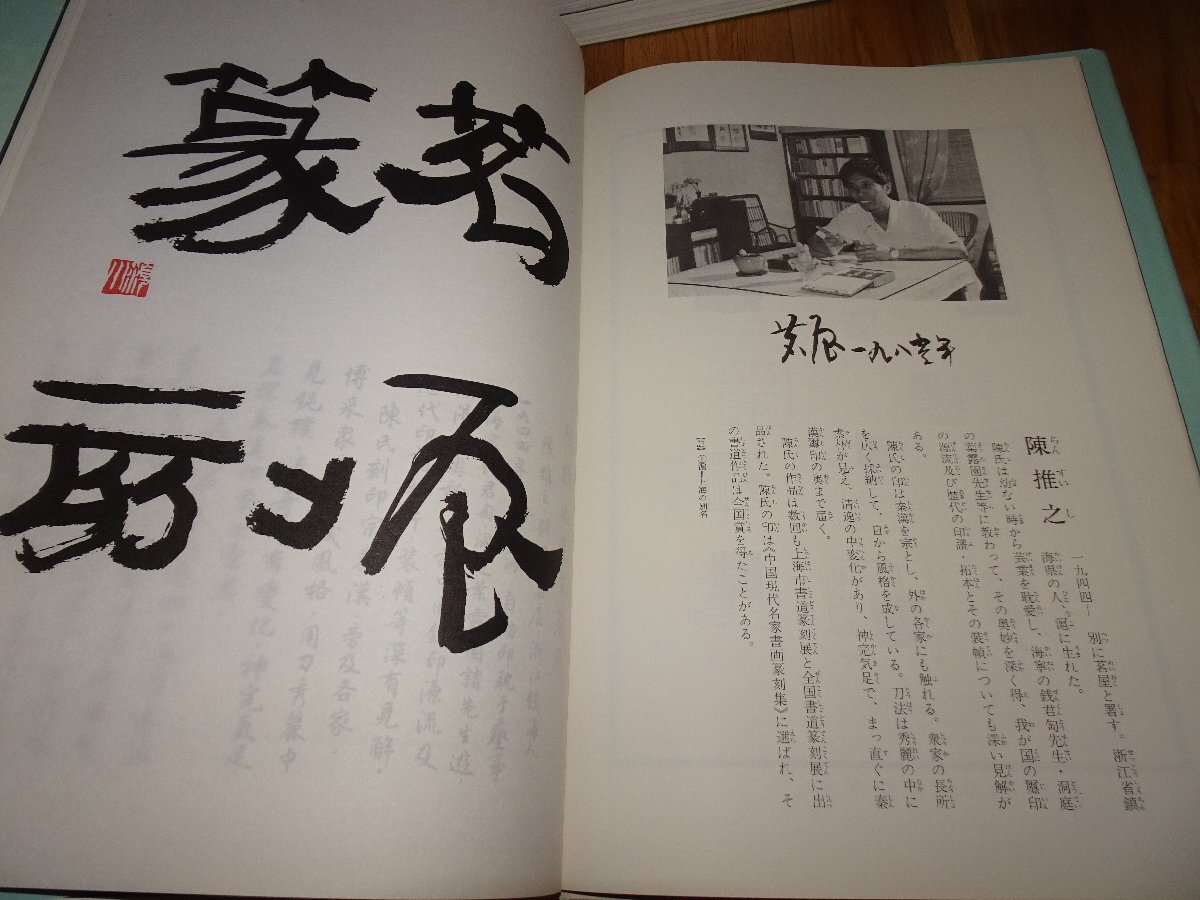 茗屋
篆
茗屋一九八 年
陳推之
一九四四― 別に茗屋と署す。浙江省鎮
海県の人、滬に生れた。
陳氏は幼ない時から芸業を耽愛し、海寧の銭君匋先生・洞庭
の葉露園先生等に教わって、その奥妙を深く得、我が国の璽印
の源流及び歴代の印譜・拓本とその装幀についても深い見解が
ある。
陳氏の印は秦漢を宗とし、外の各家にも触れる。衆家の長所
を広く採納して、自から風格を成している。刀法は秀麗の中に
蒼 が見え、清逸の中変化があり、神完気足で、まっ直ぐに秦
漢璽印の奥まで届く。
陳氏の作品は数回も上海市書道篆刻展と全国書道篆刻展に出
品された。陳氏の印は《中国現代名家書画篆刻集》に選ばれ、そ
の書道作品は全国賞を得たことがある。
上海の別名